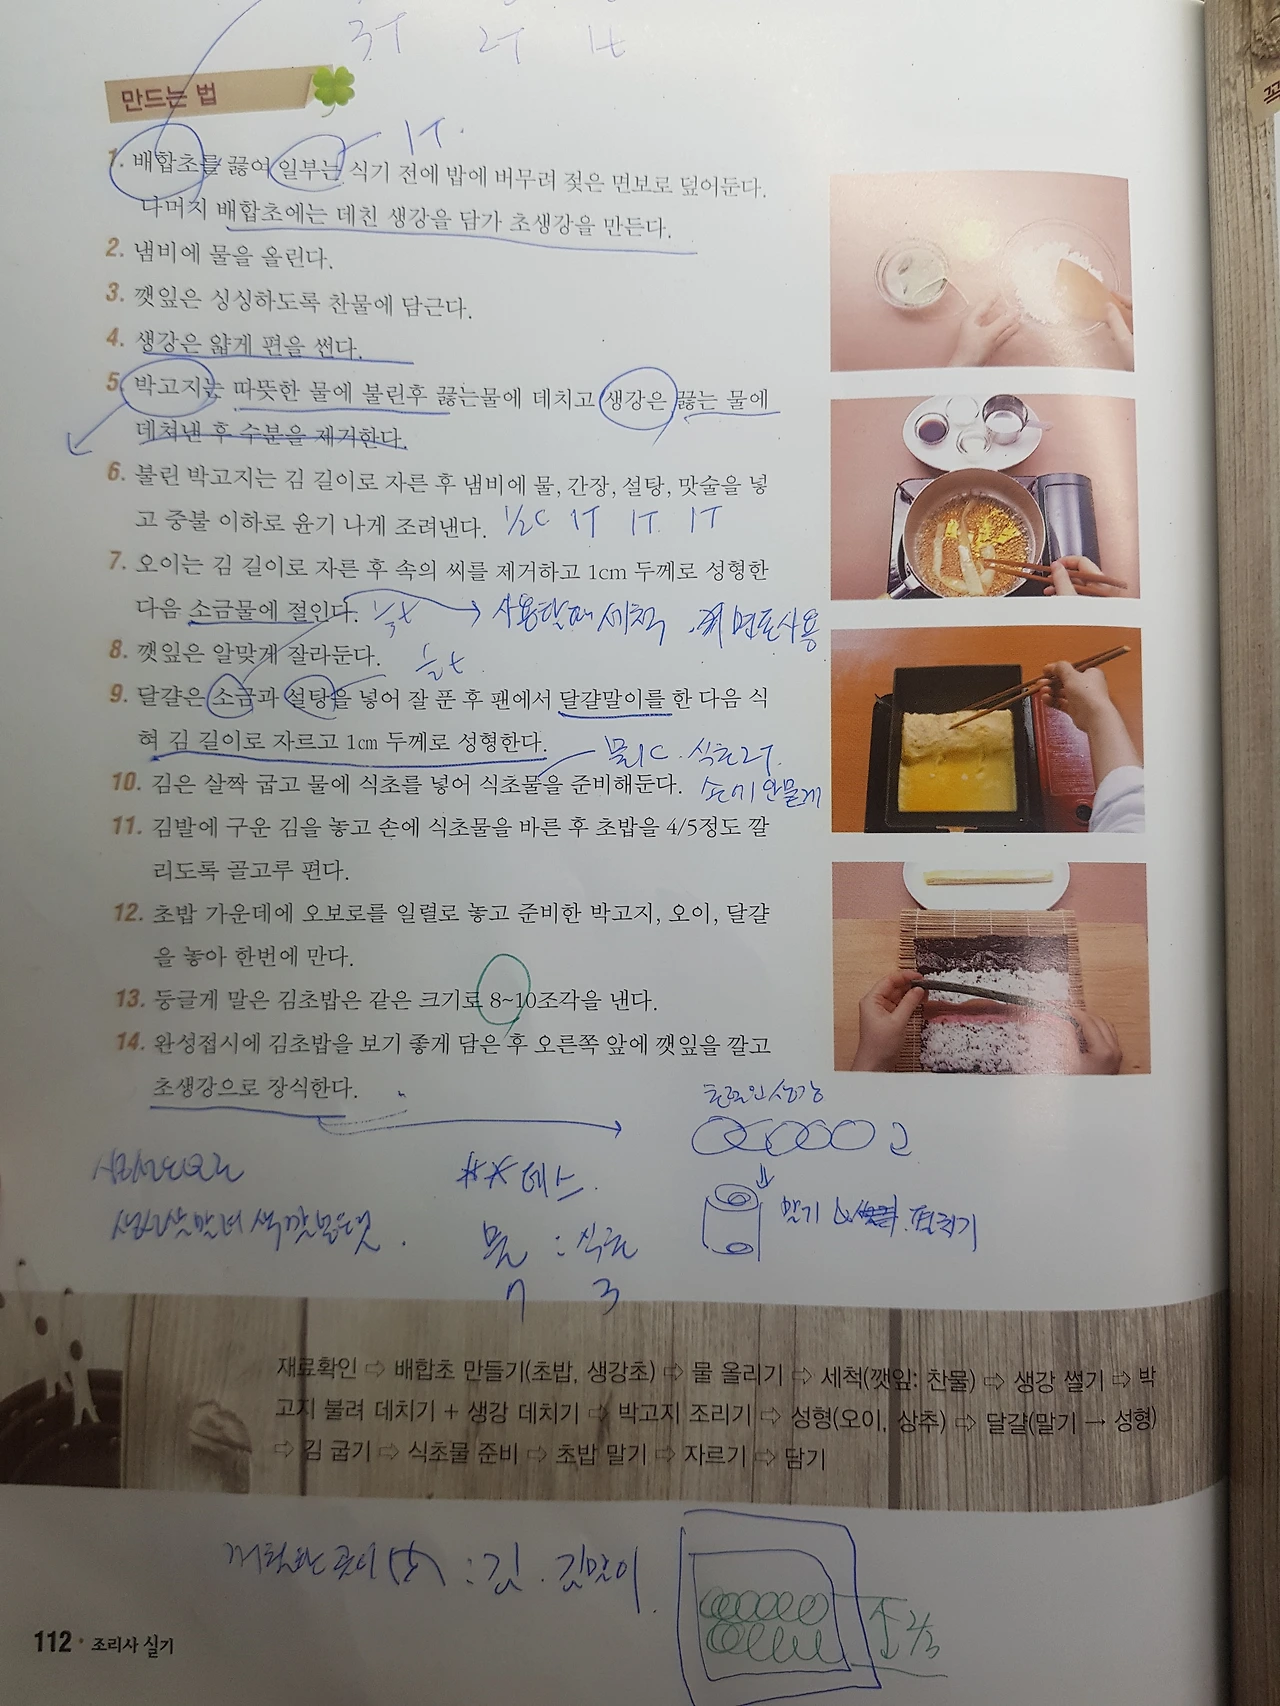 3T 2T 1t
만드는 법
1T.
1. 배합초를 끓여 일부는 식기 전에 밥에 버무려 젖은 면보로 덮어둔다.
나머지 배합초에는 데친 생강을 담가 초생강을 만든다.
2. 냄비에 물을 올린다.
3. 깻잎은 싱싱하도록 찬물에 담근다.
4. 생강은 얇게 편을 썬다.
5. 박고지는 따뜻한 물에 불린후 끓는물에 데치고 생강은 끓는 물에
데쳐낸 후 수분을 제거한다.
6. 불린 박고지는 김 길이로 자른 후 냄비에 물, 간장, 설탕, 맛술을 넣
고 중불 이하로 윤기 나게 조려낸다. 1/2C 1T 1T. 1T
7. 오이는 김 길이로 자른 후 속의 씨를 제거하고 1cm 두께로 성형한
다음 소금물에 절인다. 사용할때 세척 면포사용
8. 깻잎은 알맞게 잘라둔다.
9. 달걀은 소금과 설탕을 넣어 잘 푼 후 팬에서 달걀말이를 한 다음 식
혀 김 길이로 자르고 1㎝ 두께로 성형한다.
물1C. 식초2T.
10. 김은 살짝 굽고 물에 식초를 넣어 식초물을 준비해둔다. 손에 안묻게
11. 김발에 구운 김을 놓고 손에 식초물을 바른 후 초밥을 4/5정도 깔
리도록 골고루 편다.
12. 초밥 가운데에 오보로를 일렬로 놓고 준비한 박고지, 오이, 달걀
을 놓아 한번에 만다.
13. 둥글게 말은 김초밥은 같은 크기로 8~10조각을 낸다.
14. 완성접시에 김초밥을 보기 좋게 담은 후 오른쪽 앞에 깻잎을 깔고
초생강으로 장식한다.
데스.
물 : 식초
7 3
말기 펼치기
재료확인 ⇨ 배합초 만들기(초밥, 생강초) ⇨ 물 올리기 ⇨ 세척(깻잎: 찬물) ⇨ 생강 썰기 ⇨ 박
고지 불려 데치기 + 생강 데치기 ⇨ 박고지 조리기 ⇨ 성형(오이, 상추) ⇨ 달걀(말기 → 성형)
⇨ 김 굽기 ⇨ 식초물 준비 ⇨ 초밥 말기 ⇨ 자르기 ⇨ 담기
2/3
112 · 조리사 실기